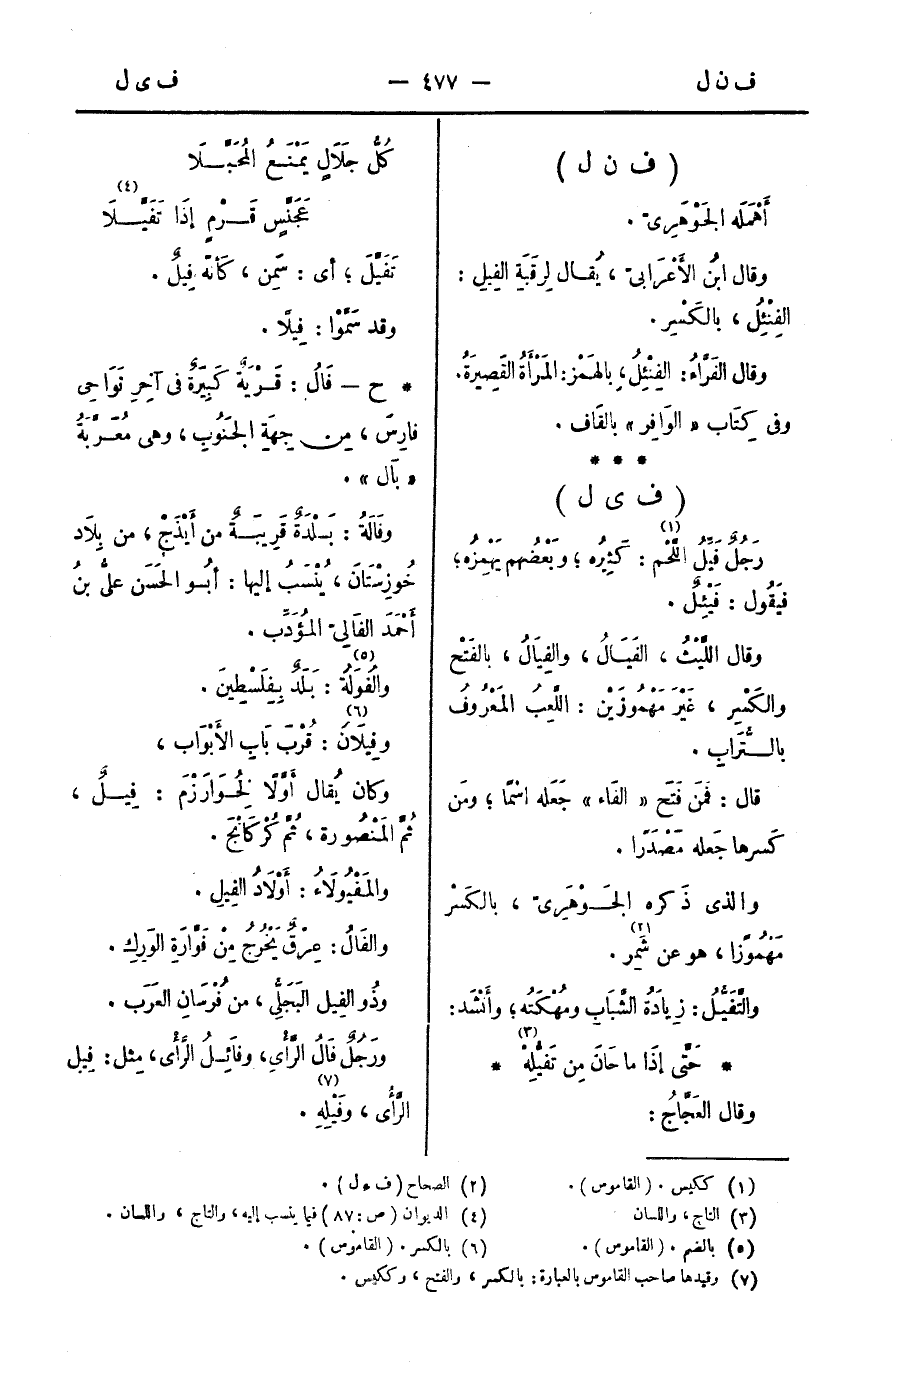 ف ن ل
— ٤٧٧ —
ف ى ل
( ف ن ل )
أَهْمَلَه الجَوْهَرِىّ .
وقال ابنُ الأَعْرَابىّ ، يُقال لِرَقَبَةِ الفِيلِ :
الفِنْئِلُ ، بالكَسْرِ .
وقال الفَرَّاءُ : الفِنْئِلُ، بالهَمْزِ : المَرْأَةُ القَصِيرَةُ.
وفى كِتَاب « الوَافِر » بالقَاف .
* * *
( ف ى ل )
رَجُلٌ فَيِّلُ اللَّحْمِ (١) : كَثِيرُه ؛ وبَعْضُهم يَهْمِزُه ؛
فيَقُول : فَيْئِلٌ .
وقال اللَّيْثُ ، الفَيَالُ ، والفِيَالُ ، بالفَتْح
والكَسْرِ ، غَيْرَ مَهْمُوزَيْن : اللُّعِبُ المَعْرُوفُ
بالتُّرَابِ .
قال : فَمَن فَتَح « الفَاء » جَعَله اسْمًا ؛ ومَن
كَسرها جَعله مَصْدَرًا .
والذى ذَكره الجَوْهَرِىّ ، بالكَسْر
مَهْمُوزًا ، هو عن شَمِر (٢) .
والتَّفَيُّلُ : زِيَادَةُ الشَّبَابِ ومُهْكَتُه ؛ وأَنْشَد :
* حَتَّى إذَا ما حَانَ مِن تَفَيُّلِهْ (٣) *
وقال العَجَّاجُ :
كُلَّ جَلَالٍ يَمْنَعُ المُحَبَّلَا
عَجَنَّسٍ قَرْمٍ إذَا تَفَيَّلَا (٤)
تَفَيَّلَ ؛ أى : سَمِن ، كَأَنّه فِيلٌ .
وقد سَمَّوْا : فِيلًا .
* ح — قَالُ : قَرْيَةٌ كَبِيرَةٌ فى آخِرِ نَوَاحِى
فارِسَ ، مِن جِهَةِ الجَنُوبِ ، وهى مُعَرَّبَةُ
« بَال » .
وفَالَةُ : بَلْدَةٌ قَرِيبَةٌ من أَيْذَجْ ، من بِلَاد
خُوزِسْتَانَ ، يُنْسَبُ إليها : أبُو الحَسَن علىُّ بنُ
أَحْمَدَ الفَالىّ المُؤَدِّب .
والفُولَةُ (٥) : بَلَدٌ بِفِلَسْطِينَ .
وفِيلَانُ (٦) : قُرْبَ بَابِ الأَبْوَاب ،
وكان يُقال أوَّلًا لِخُوَارَزْمَ : فِيلٌ ،
ثُمَّ المَنْصُورة ، ثُمَّ كُرْكَانْجَ .
والمَفْيُولَاءُ : أَوْلَادُ الفِيلِ .
والفَالُ : عِرْقٌ يَخْرُجُ مِنْ فَوَّارَةِ الوَرِكِ .
وذُو الفِيل البَجَلىُّ ، من فُرْسَانِ العَرَب .
ورَجُلٌ فَالُ الرَّأْىِ، وفائِلُ الرَّأْى، مِثل : فِيلِ
الرَّأْى ، وفَيْلِهِ (٧) .
(١) ككيس . ( القاموس ) .
(٢) الصحاح ( ف ء ل ) .
(٣) التاج ، واللسان
(٤) الديوان ( ص : ٨٧ ) فيما ينسب إليه ، والتاج ، واللسان .
(٥) بالضم . ( القاموس ) .
(٦) بالكسر . ( القاموس ) .
(٧) وقيدها صاحب القاموس بالعبارة : بالكسر ، والفتح ، وككيس .